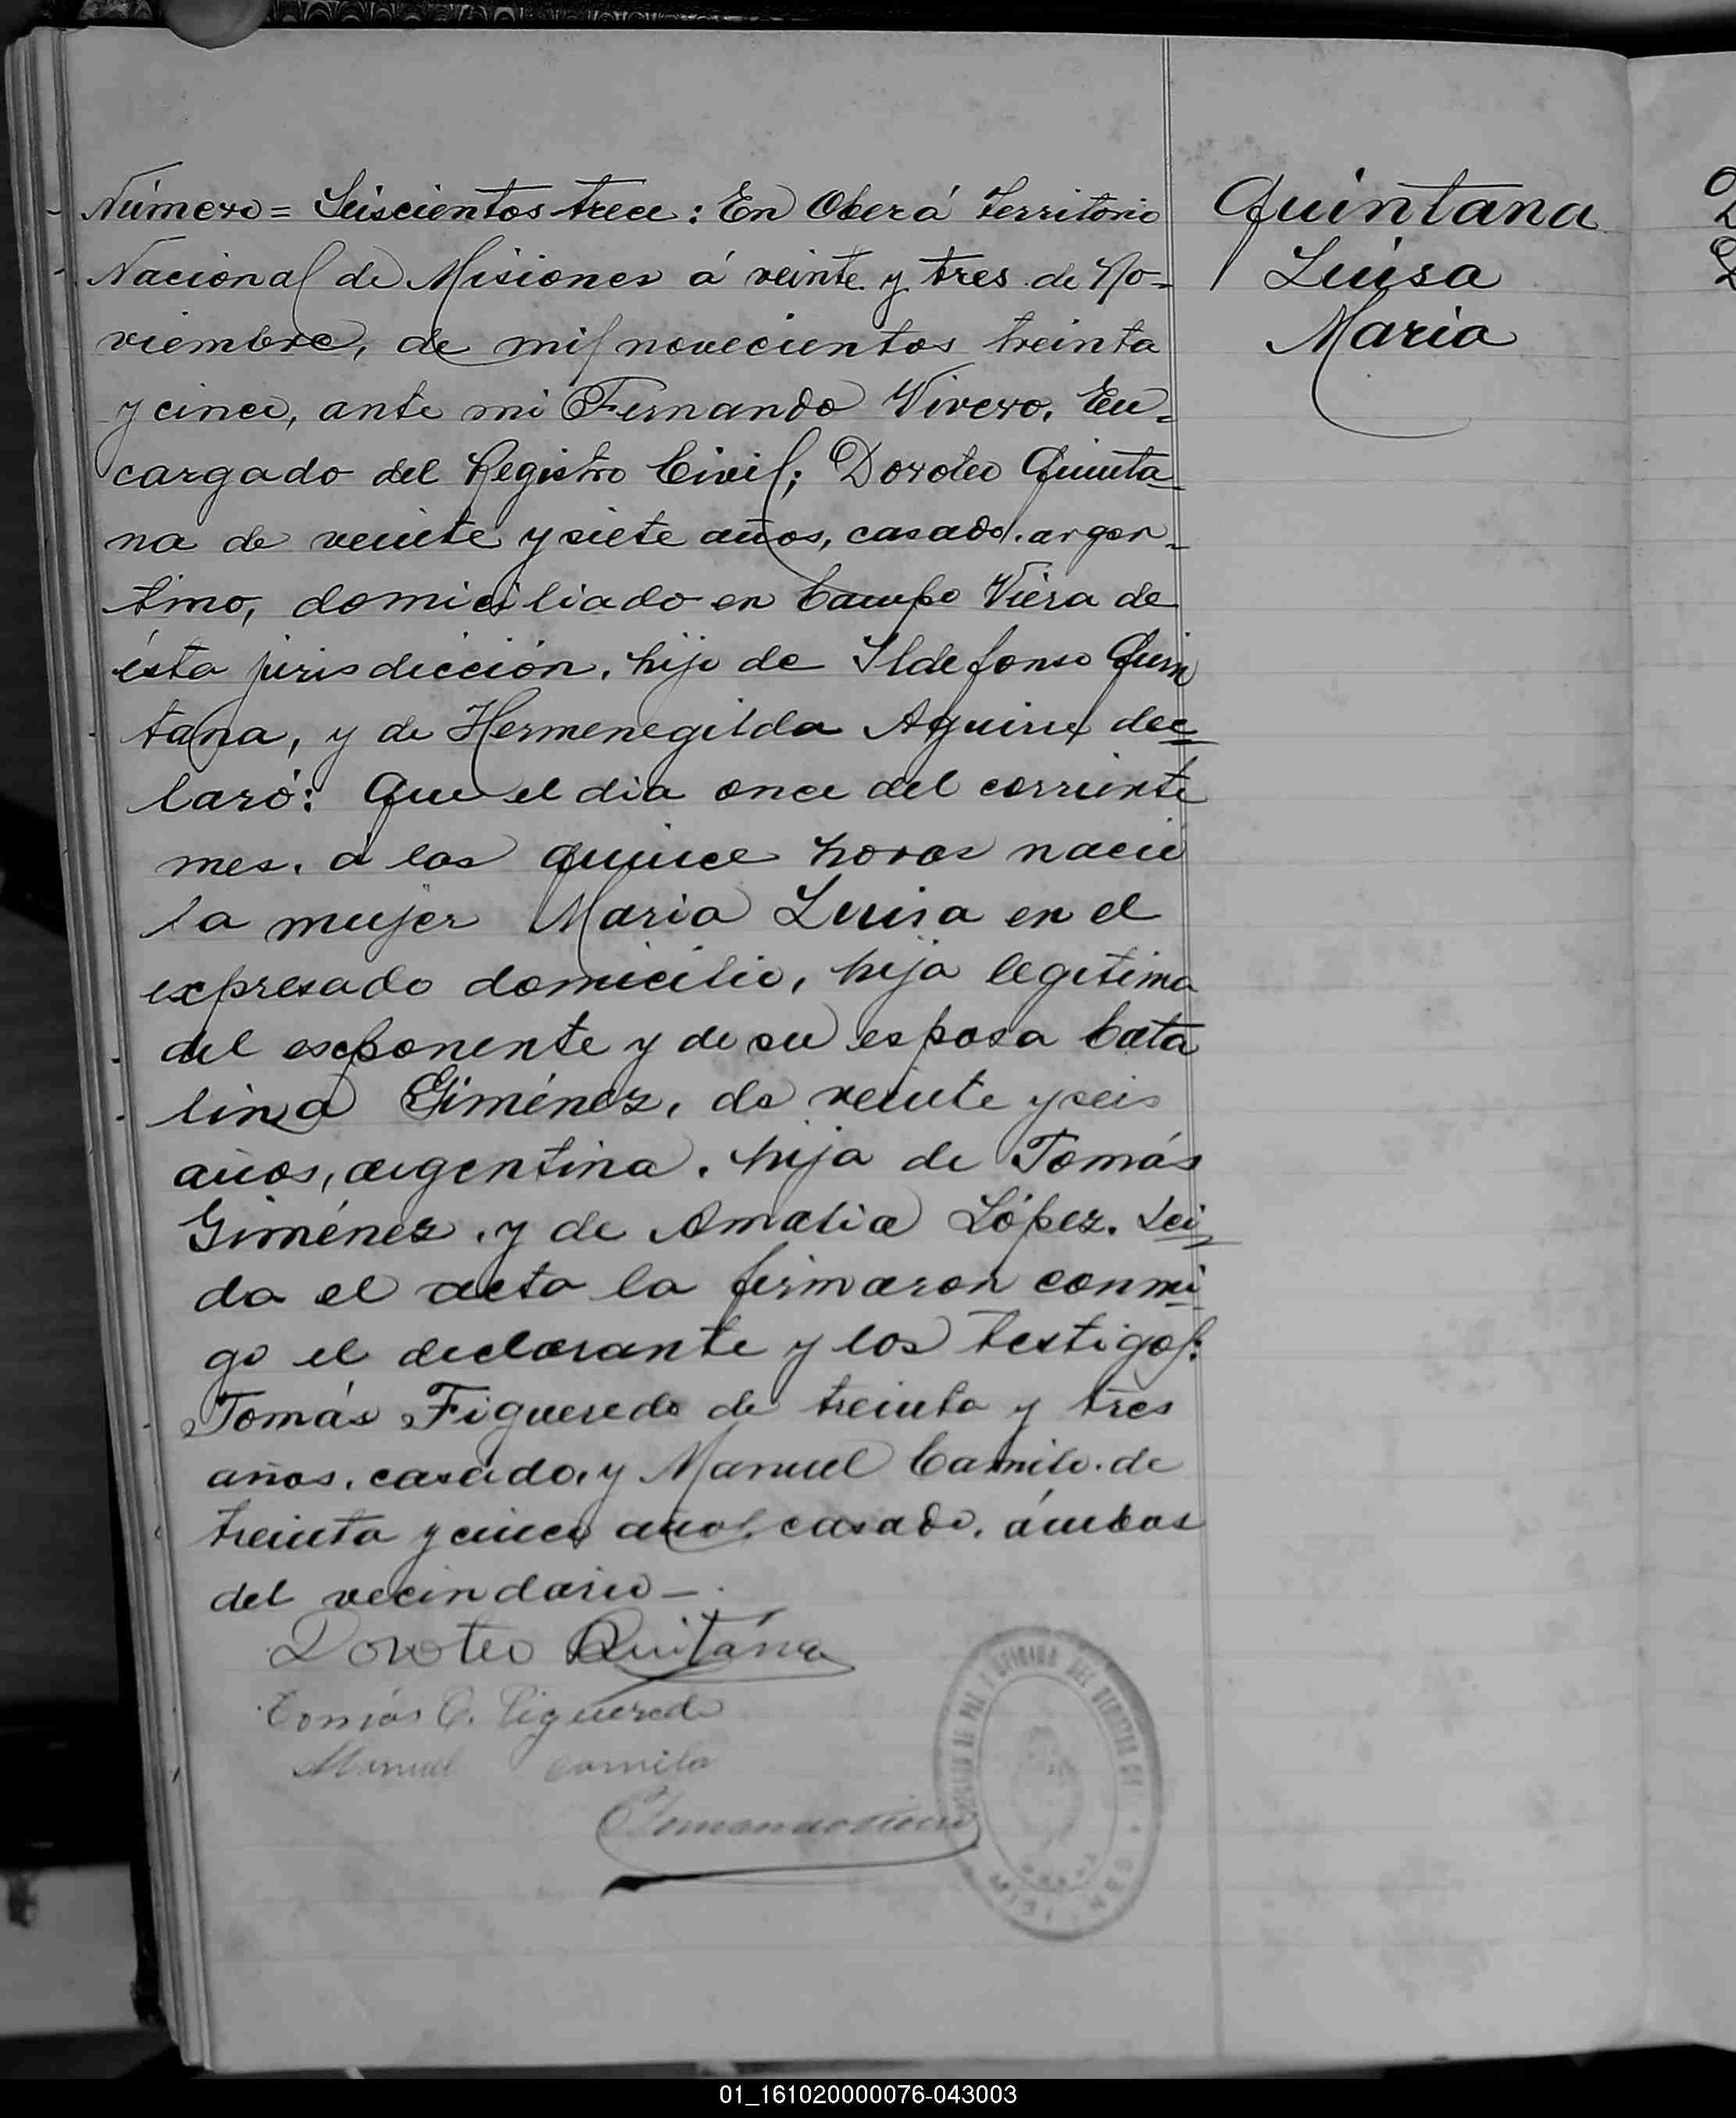 Número = Seiscientos trece: En Oberá Territorio
Nacional de Misiones á veinte y tres de No-
viembre, de mil novecientos treinta
y cinco, ante mi Fernando Vivero, En-
cargado del Registro Civil; Doroteo Quinta-
na de veinte y siete años, casado. argen-
tino, domiciliado en Campo Viera de
ésta jurisdicción, hijo de Ildefonso Quin
tana, y de Hermenegilda Aguirre dec
laró: Que el dia once del corriente
mes. á las quince horas nació
la mujer Maria Luisa en el
expresado domicilio, hija legitima
del exponente y de su esposa Cata
lina Giménez, de veinte y seis
años, argentina. hija de Tomás
Giménez. y de Amalia López. Lei
da el acta la firmaron conmi
go el declarante y los testigos:
Tomás Figueredo de treinta y tres
años. casado, y Manuel Camilo. de
treinta y cinco años, casado. ámbos
del vecindario -.
Doroteo Quitána
Tomás C. Figueredo
Manuel Camilo
Quintana
Luisa
Maria
MISIONES
01_161020000076-043003